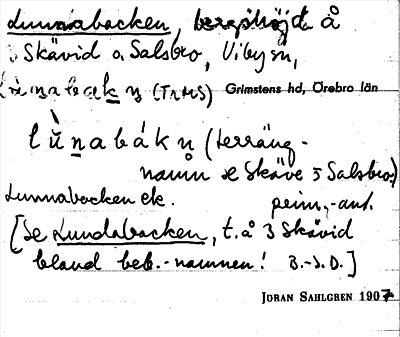 Lunnabacken, bergshöjd å
Skävid o. Salsbro, Viby sn,
lùnabakn (TrMS) Grimstens hd, Örebro län
lùnabákn (terräng-
namn
Lunnabacken ek. prim.-ant.
[Se Lundabacken, t. å 3 Skävid
bland beb.-namnen! B.-S.D.]
JÖRAN SAHLGREN 1907